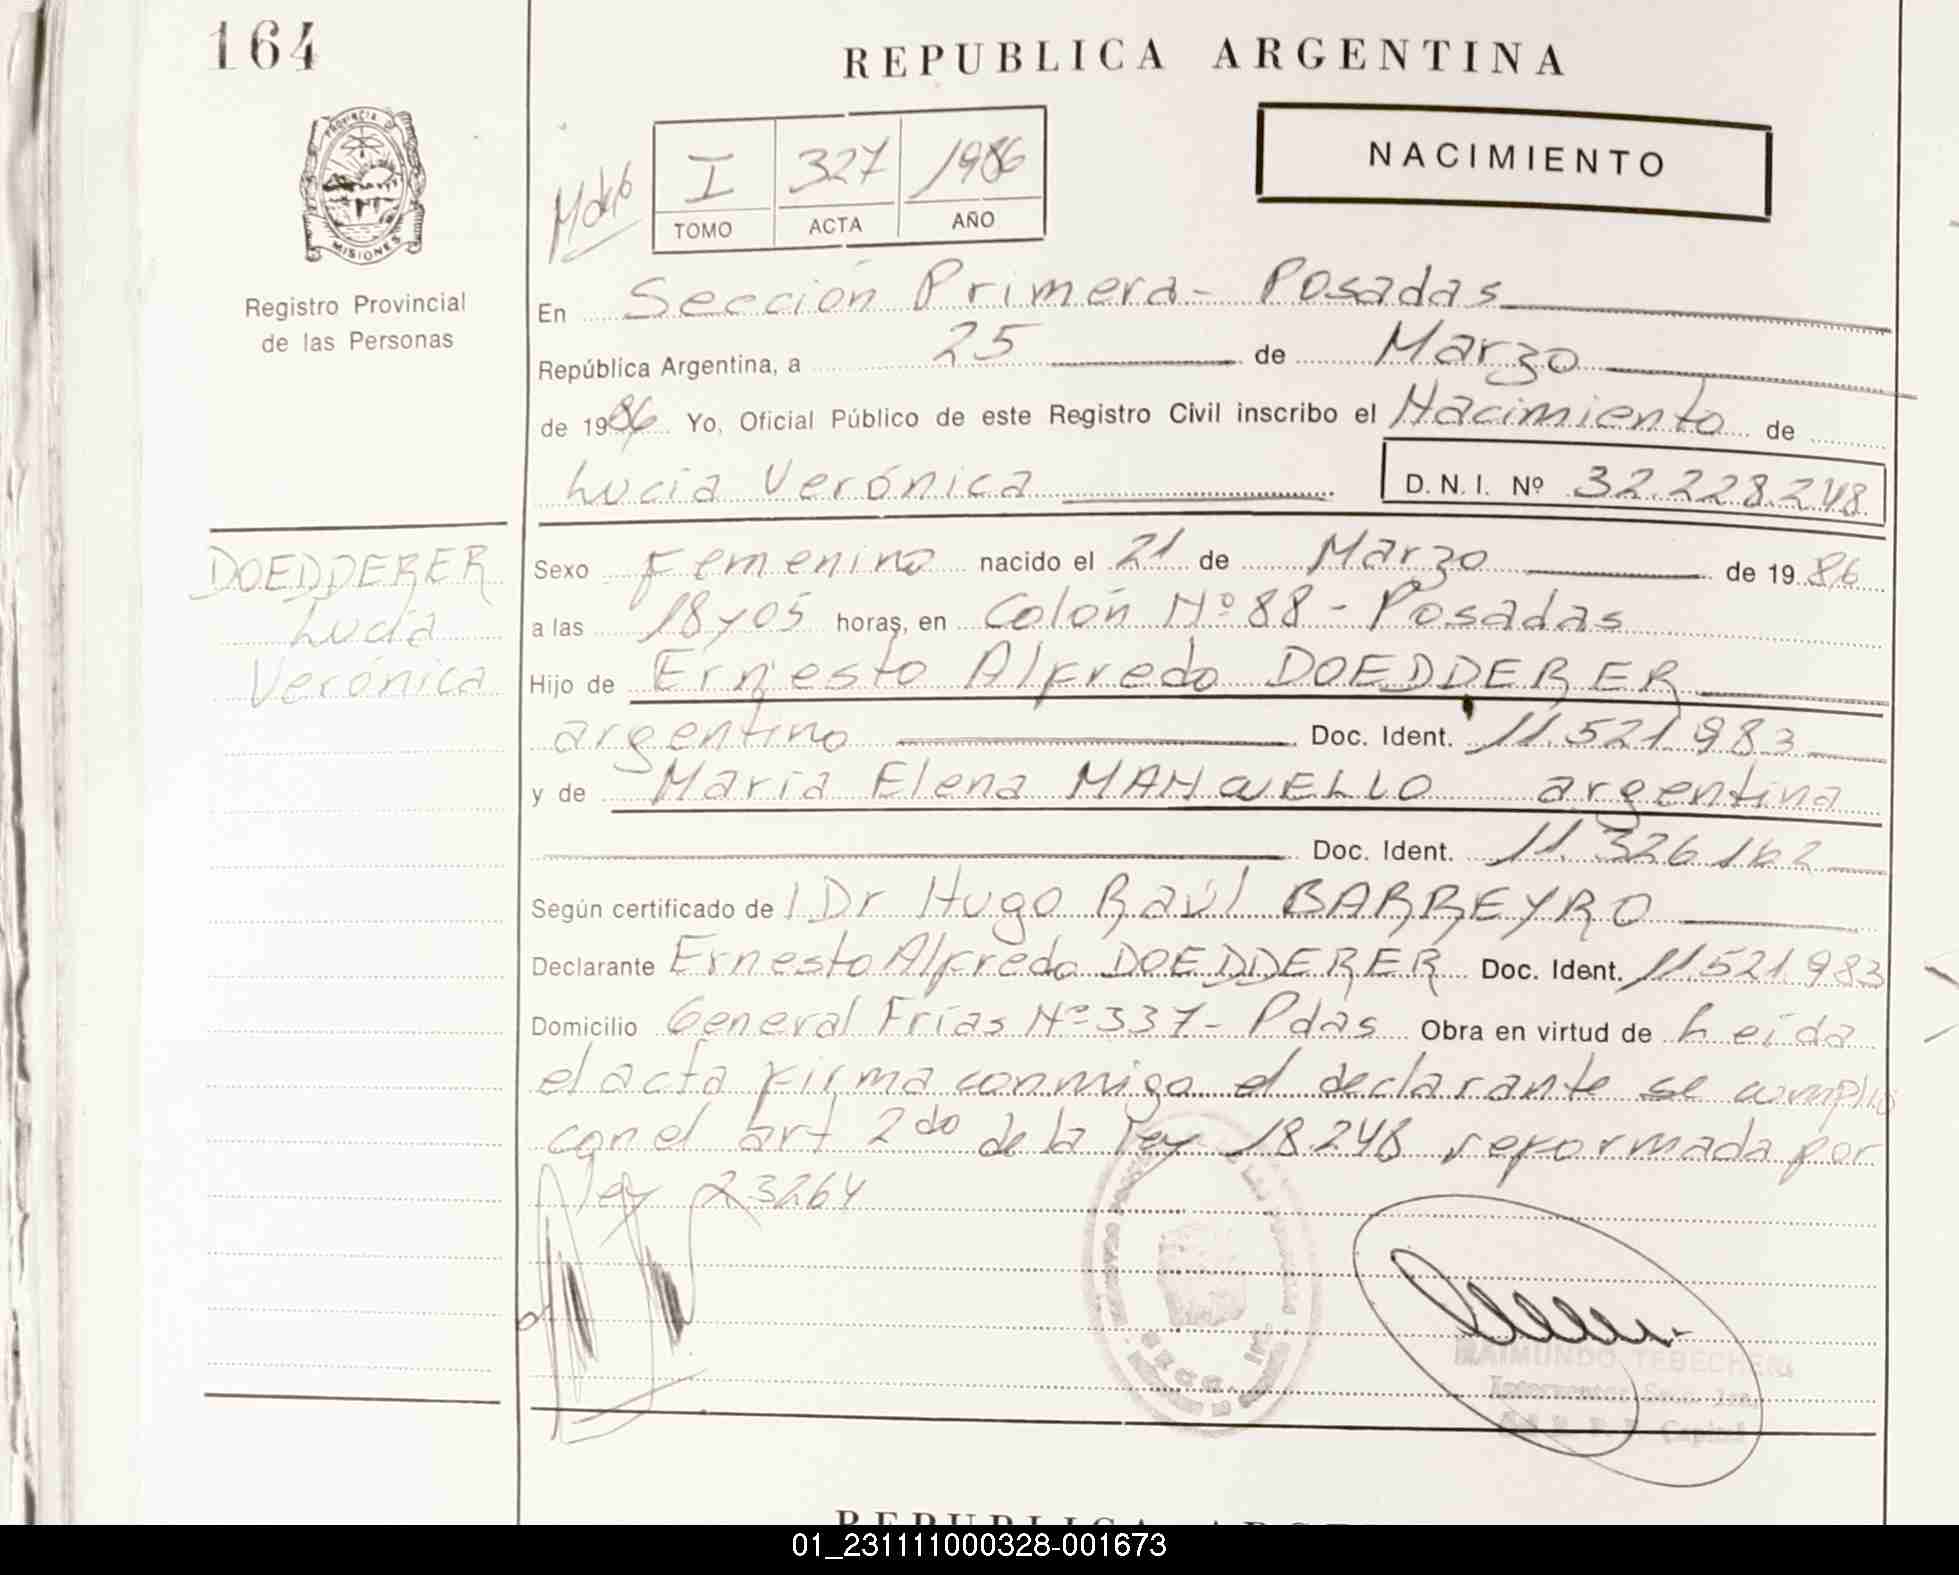 164
REPUBLICA ARGENTINA
PROVINCIA DE
MISIONES
Registro Provincial
de las Personas
I 327 1986
TOMO ACTA AÑO
NACIMIENTO
En Sección Primera- Posadas
República Argentina, a 25 de Marzo
de 1986 Yo, Oficial Público de este Registro Civil inscribo el Nacimiento de
Lucia Verónica D. N. I. Nº 32.228.248
DOEDDERER
Lucia
Verónica
Sexo Femenino nacido el 21 de Marzo de 1986
a las 18 y 05 horas, en Colón Nº 88 - Posadas
Hijo de Ernesto Alfredo DOEDDERER
argentino Doc. Ident. 11.521.983
y de Maria Elena MANQUELLO argentina
Doc. Ident. 11.326.162
Según certificado de l Dr Hugo Raúl BARREYRO
Declarante Ernesto Alfredo DOEDDERER Doc. Ident. 11.521.983
Domicilio General Frías Nº 337- Pdas Obra en virtud de Leída
el acta firma conmigo el declarante se cumplio
con el art 2do de la ley 18.248 reformada por
ley 23264
RAIMUNDO TEBECHERI
Capital
REPUBLICA
01_231111000328-001673